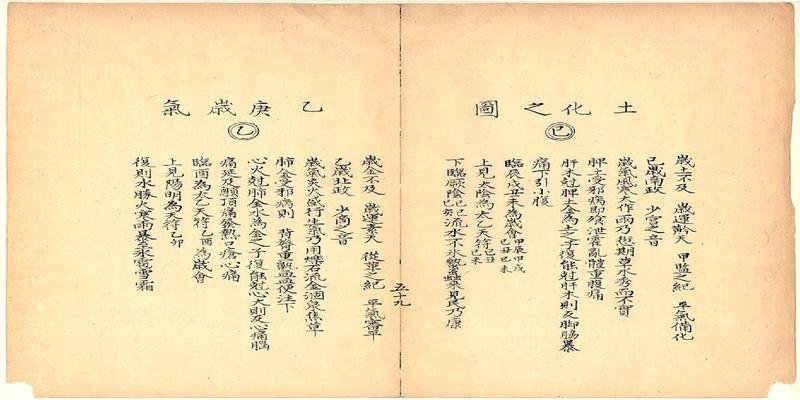 土化之圖
己
歲土不及 歲運黅天 甲監之紀 平氣備化
己歲南政 少宮之音
歲氣風寒大作雨乃愆期草木秀而不實
脾土受邪病即飧泄霍亂體重腹痛
肝木尅脾土金為土之子復能尅肝木則反脚脇暴
痛下引小腹
臨辰戌丑未為歲會甲辰甲戌己丑己未
上見太陰為太乙天符己丑己未
下臨厥陰己巳己亥流水不氷蟄蟲來見民乃康
五十九
乙庚歲氣
乙
歲金不及 歲運素天 從革之紀 平氣審平
乙歲北政 少商之音
歲氣炎火盛行生氣乃用爍石流金涸泉焦草
肺金受邪病則 背膂重鼽嚏血便注下
心火尅肺金水為金之子復能尅心火則反心痛腦
痛延及顖頂痛發熱口瘡心痛
臨酉為太乙天符乙酉為歲會
上見陽明為天符乙卯
復則水勝火寒雨暴至氷雹雪霜